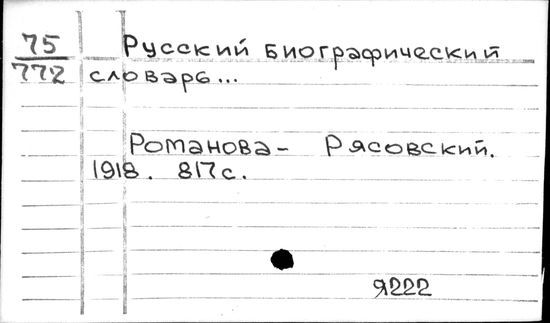 75 Русский биографический
772 словарь...
Романова- Рясовский.
1918. 817с.
Я222